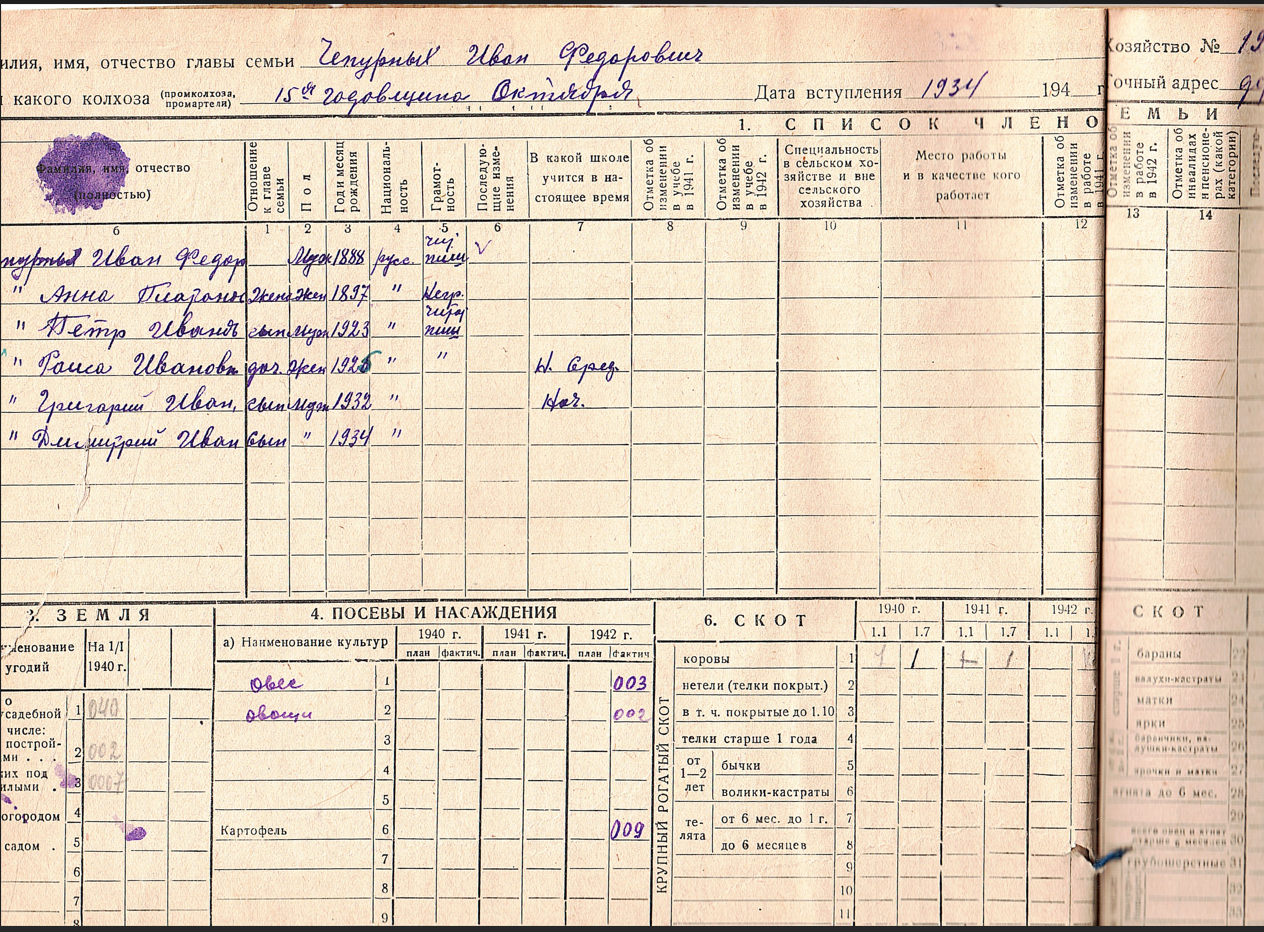 илия, имя, отчество главы семьи Чепурных Иван Федорович
Хозяйство №
какого колхоза (промколхоза, промартели) 15ая годовщина Октября Дата вступления 1934 194 г.
Точный адрес
1. СПИСОК ЧЛЕНО
ЕМЬИ
Фамилия, имя, отчество (полностью)
Отношение к главе семьи
Пол
Год и месяц рождения
Националь-ность
Грамот-ность
Последую-щие изме-нения
В какой школе учится в на-стоящее время
Отметка об изменении в учебе в 1941 г.
Отметка об изменении в учебе в 1942 г.
Специальность в сельском хо-зяйстве и вне сельского хозяйства
Место работы и в качестве кого работает
Отметка об изменении в работе в 1941 г.
Отметка об изменении в работе в 1942 г.
Отметка об инвалидах и пенсионе-рах (какой категории)
6 1 2 3 4 5 6 7 8 9 10 11 12 13 14
Иван Федор Муж 1888 русс. чит. пиш
" Анна Жена Жен 1897 " Негр.
" Петр Иванов сын Муж 1923 " читаj пиш
" Раиса Ивановн доч. Жен 1925 " " Н. Сред.
" Григорий Иван. сын Муж 1932 " Нач.
" Дмитрий Иван Сын " 1934 "
3. ЗЕМЛЯ
4. ПОСЕВЫ И НАСАЖДЕНИЯ
6. СКОТ
1940 г. 1941 г. 1942 г.
1.1 1.7 1.1 1.7 1.1
СКОТ
менование угодий
На 1/I 1940 г.
а) Наименование культур
1940 г. 1941 г. 1942 г.
план фактич. план фактич. план фактич
КРУПНЫЙ РОГАТЫЙ СКОТ
усадебной 1 040
числе:
построй-
ми . . . 2 002
их под
илыми . 3
огородом 4
садом . 5
6
7
8
овес 1 003
овощи 2 002
3
4
5
Картофель 6 009
7
8
9
коровы 1 1 1 1 1
нетели (телки покрыт.) 2
в т. ч. покрытые до 1.10 3
телки старше 1 года 4
от 1—2 лет
бычки 5
волики-кастраты 6
те-лята
от 6 мес. до 1 г. 7
до 6 месяцев 8
9
10
11
бараны 22
валухи-кастраты 23
матки 24
ярки 25
баранчики, ва-лушки-кастраты 26
ярочки и матки 27
ягнята до 6 мес. 28
29
всего овец и ягнят старше 6 месяцев 30
грубошерстные 31
32
33